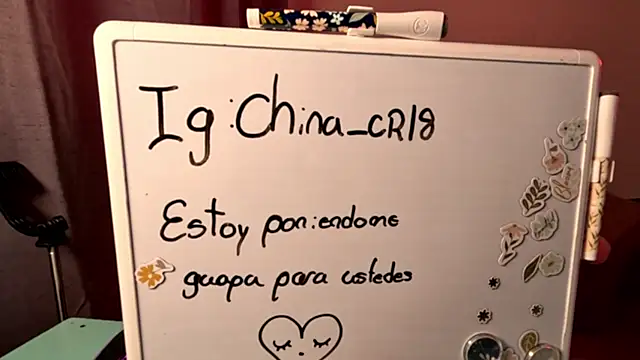 Ig:China_CR18
Estoy poniendome
guapa para ustedes